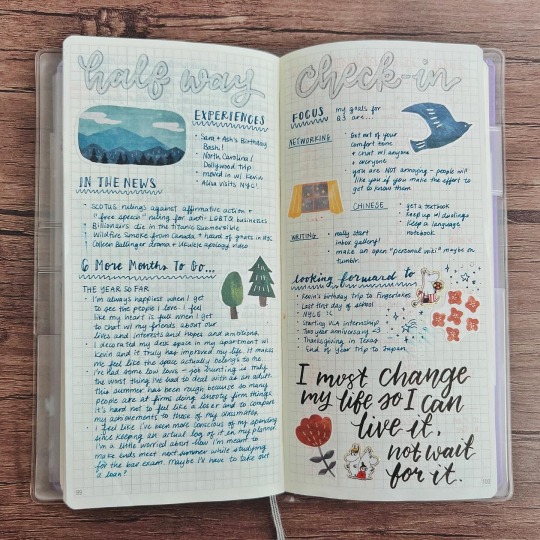 half way check-in
EXPERIENCES
• Sara + Ash's Birthday
Bash!
• North Carolina /
Dollywood trip
• moved in w/ Kevin
• Alha visits NYC!
IN THE NEWS
• SCOTUS rulings against affirmative action +
"free speech" ruling for anti-LGBTQ businesses
• Billionaires die in titanic submersible
• Wildfire smoke from Canada + hazard of giants in NYC
• Colleen Ballinger drama + Ukulele apology video
6 More Months To Go...
THE YEAR SO FAR
• I'm always happiest when I get
to see the people I love. I feel
like my heart is full when I get
to chat w/ my friends about our
lives and interests and hopes and ambitions.
• I decorated my desk space in my apartment w/
Kevin and it truly has improved my life. It makes
me feel like the space actually belongs to me.
• I've had some low lows – job hunting is truly
the worst thing I've had to deal with as an adult.
This summer has been rough because so many
people are at firms doing shooty firm things
it's hard to not feel like a loser and to compare
my achievements to those of my classmates.
• I feel like I've been more conscious of my spending
since keeping an actual log of it in my planner
I'm a little worried about how I'm meant to
make ends meet next summer while studying
for the bar exam. Maybe I'll have to take out
a loan?
99
FOCUS my goals for
Q3 are...
NETWORKING
• Get out of your
comfort zone
+ chat w/ anyone
+ everyone
• you are NOT annoying – people will
like you if you make the effort to
get to know them
CHINESE
• get a textbook
• Keep up w/ duolingo
• Keep a language
notebook
WRITING
• really start
inbox gallery!
• make an open "personal wiki" maybe on
tumblr
looking forward to
• Kevin's birthday trip to Fingerlakes
• Last first day of school
• NYLE :(
• Starting VLA internship
• Two year anniversary <3
• Thanksgiving in Texas
• End of year trip to Japan
I must change
my life so I can
live it,
not wait
for it.
100